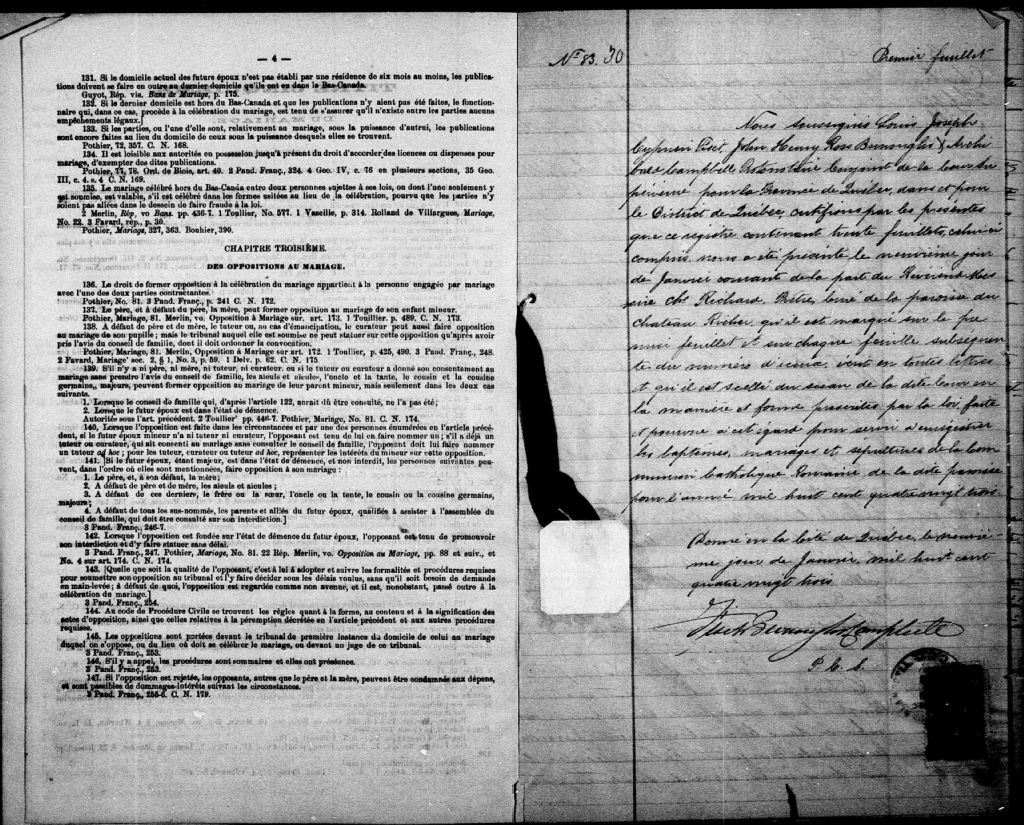 — 4 —
131. Si le domicile actuel des futurs époux n'est pas établi par une résidence de six mois au moins, les publica-
tions doivent se faire en outre au dernier domicile qu'ils ont eu dans le Bas-Canada.
Guyot, Rép. vis. Bans de Mariage, p. 175.
132. Si le dernier domicile est hors du Bas-Canada et que les publications n'y aient pas été faites, le fonction-
naire qui, dans ce cas, procède à la célébration du mariage, est tenu de s'assurer qu'il n'existe entre les parties aucuns
empêchements légaux.]
133. Si les parties, ou l'une d'elles sont, relativement au mariage, sous la puissance d'autrui, les publications
sont encore faites au lieu du domicile de ceux sous la puissance desquels elles se trouvent.
Pothier, 72, 357. C. N. 168.
134. Il est loisible aux autorités en possession jusqu'à présent du droit d'accorder des licences ou dispenses pour
mariage, d'exempter des dites publications.
Pothier, 77, 78. Ord. de Blois, art. 40. 2 Pand. Franç., 324. 4 Geo. IV, c. 76 en plusieurs sections, 35 Geo.
III, c. 4. s. 4 C. N. 169.
135. Le mariage célébré hors du Bas-Canada entre deux personnes sujettes à ses lois, ou dont l'une seulement y
est soumise, est valable, s'il est célébré dans les formes usitées au lieu de la célébration, pourvu que les parties n'y
soient pas allées dans le dessein de faire fraude à la loi.
2 Merlin, Rép, vo Bans. pp. 436-7. 1 Toullier, No. 577. 1 Vazeille, p. 314. Rolland de Villargues, Mariage,
No. 22. 3 Favard, rép., p. 30.
Pothier, Mariage, 327, 363. Bouhier, 390.
CHAPITRE TROISIÈME.
DES OPPOSITIONS AU MARIAGE.
136. Le droit de former opposition à la célébration du mariage appartient à la personne engagée par mariage
avec l'une des deux parties contractantes.
Pothier, No. 81. 3 Pand. Franç., p. 241 C. N. 172.
137. Le père, et à défaut du père, la mère, peut former opposition au mariage de son enfant mineur.
Pothier, Mariage, 81. Merlin, vo. Opposition à Mariage sur. art. 173. 1 Touillier. p. 489. C. N. 173.
138. A défaut de père et de mère, le tuteur ou, au cas d'émancipation, le curateur peut aussi faire opposition
au mariage de son pupille; mais le tribunal auquel elle est soumise ne peut statuer sur cette opposition qu'après avoir
pris l'avis du conseil de famille, dont il doit ordonner la convocation.
Pothier, Mariage, 81. Merlin, Opposition à Mariage sur art. 172. 1 Toullier, p. 425, 490. 3 Pand. Franç., 248.
2 Favard, Mariage' sec. 2, § 1, No. 3, p. 59. 1 Delv. p. 62. C. N. 175.
139. S'il n'y a ni père, ni mère, ni tuteur, ni curateur. ou si le tuteur ou curateur a donné son consentement au
mariage sans prendre l'avis du conseil de famille, les aïeuls et aïeules, l'oncle et la tante, le cousin et la cousine
germains, majeurs, peuvent former opposition au mariage de leur parent mineur, mais seulement dans les deux cas
suivants.
1. Lorsque le conseil de famille qui, d'après l'article 122, aurait dû être consulté, ne l'a pas été;
2. Lorsque le futur époux est dans l'état de démence.
Autorités sous l'art. précédent. 2 Toullier' pp. 446-7. Pothier, Mariage, No. 81. C. N. 174.
140. Lorsque l'opposition est faite dans les circonstances et par une des personnes énumérées en l'article précé-
dent, si le futur époux mineur n'a ni tuteur ni curateur, l'opposant est tenu de lui en faire nommer un; s'il a déjà un
tuteur ou curateur, qui ait consenti au mariage sans consulter le conseil de famille, l'opposant doit lui faire nommer
un tuteur ad hoc; pour les tuteur, curateur ou tuteur ad hoc, représenter les intérêts du mineur sur cette opposition.
141. Si le futur époux, étant majeur, est dans l'état de démence, et non interdit, les personnes suivantes peu-
vent, dans l'ordre où elles sont mentionnées, faire opposition à son mariage:
1. Le père, et, à son défaut, la mère;
2. A défaut de père et de mère, les aïeuls et aïeules;
3. A défaut de ces derniers, le frère ou la sœur, l'oncle ou la tente, le cousin ou la cousine germains,
majeurs;
4. A défaut de tous les sus-nommés, les parents et alliés du futur époux, qualifiés à assister à l'assemblée du
conseil de famille, qui doit être consulté sur son interdiction.]
3 Pand. Franç., 246-7.
142. Lorsque opposition est fondée sur l'état de démence du futur époux, l'opposant est tenu de promouvoir
son interdiction et d'y faire statuer sans délai.
3 Pand. Franç., 247. Pothier, Mariage, No. 81. 22 Rép. Merlin, vo. Opposition au Mariage, pp. 88 et suiv., et
No. 4 sur art. 174. C. N. 174.
143. [Quelle que soit la qualité de l'opposant, c'est à lui à adopter et suivre les formalités et procédures requises
pour soumettre son opposition au tribunal et l'y faire décider sous les délais voulus, sans qu'il soit besoin de demande
en main-levée; à défaut de quoi, l'opposition est regardée comme non avenue, et il est, nonobstant, passé outre à la
célébration du mariage.]
3 Pand. Franç., 254.
144. Au code de Procédure Civile se trouvent les règles quant à la forme, au contenu et à la signification des
actes d'opposition, ainsi que celles relatives à la péremption décrétée en l'article précédent et aux autres procédures
requises.
145. Les oppositions sont portées devant le tribunal de première instance du domicile de celui au mariage
duquel on s'oppose, ou du lieu où doit se célébrer le mariage, ou devant un juge de ce tribunal.
3 Pand. Franç., 253.
146. S'il y a appel, les procédures sont sommaires et elles ont préséance.
3 Pand. Franç., 253.
147. Si l'opposition est rejetée, les opposants, autres que le père et la mère, peuvent être condamnés aux dépens,
et sont passibles de dommages-intérêts suivant les circonstances.
3 Pand. Franç., 255-6. C. N. 179.
No 83. 30
Premier feuillet
Nous soussignés Louis Joseph
Cyprien Fiset, John Henry Ross Burroughs & Archi
bald Campbell Protonotaire Conjoint de la Cour Su
périeure pour la Province de Québec, dans et pour
le District de Québec, certifions par les présentes
que ce registre contenant trente feuillets, celui-ci
compris nous a été présenté le neuvième jour
de Janvier courant de la part du Révérend Mes
sire Chs Richard, Prêtre, Curé de la paroisse du
Chateau Richer, qu'il est marqué sur le pre
mier feuillet et sur chaque feuille subséquen
te du numéro d'icelui écrit en toutes lettres
et qu'il est scellé du sceau de la dite Cour en
la manière et forme prescrites par la loi faite
et pourvue à cet égard pour servir à enregistrer
les baptêmes, mariages et sépultures de la Com
munion Catholique Romaine de la dite paroisse
pour l'année mil huit cent quatre vingt trois.
Donné en la Cité de Québec, le neuviè-
me jour de Janvier, mil huit cent
quatre vingt trois
Fiset Burroughs Campbell
P. C. S.